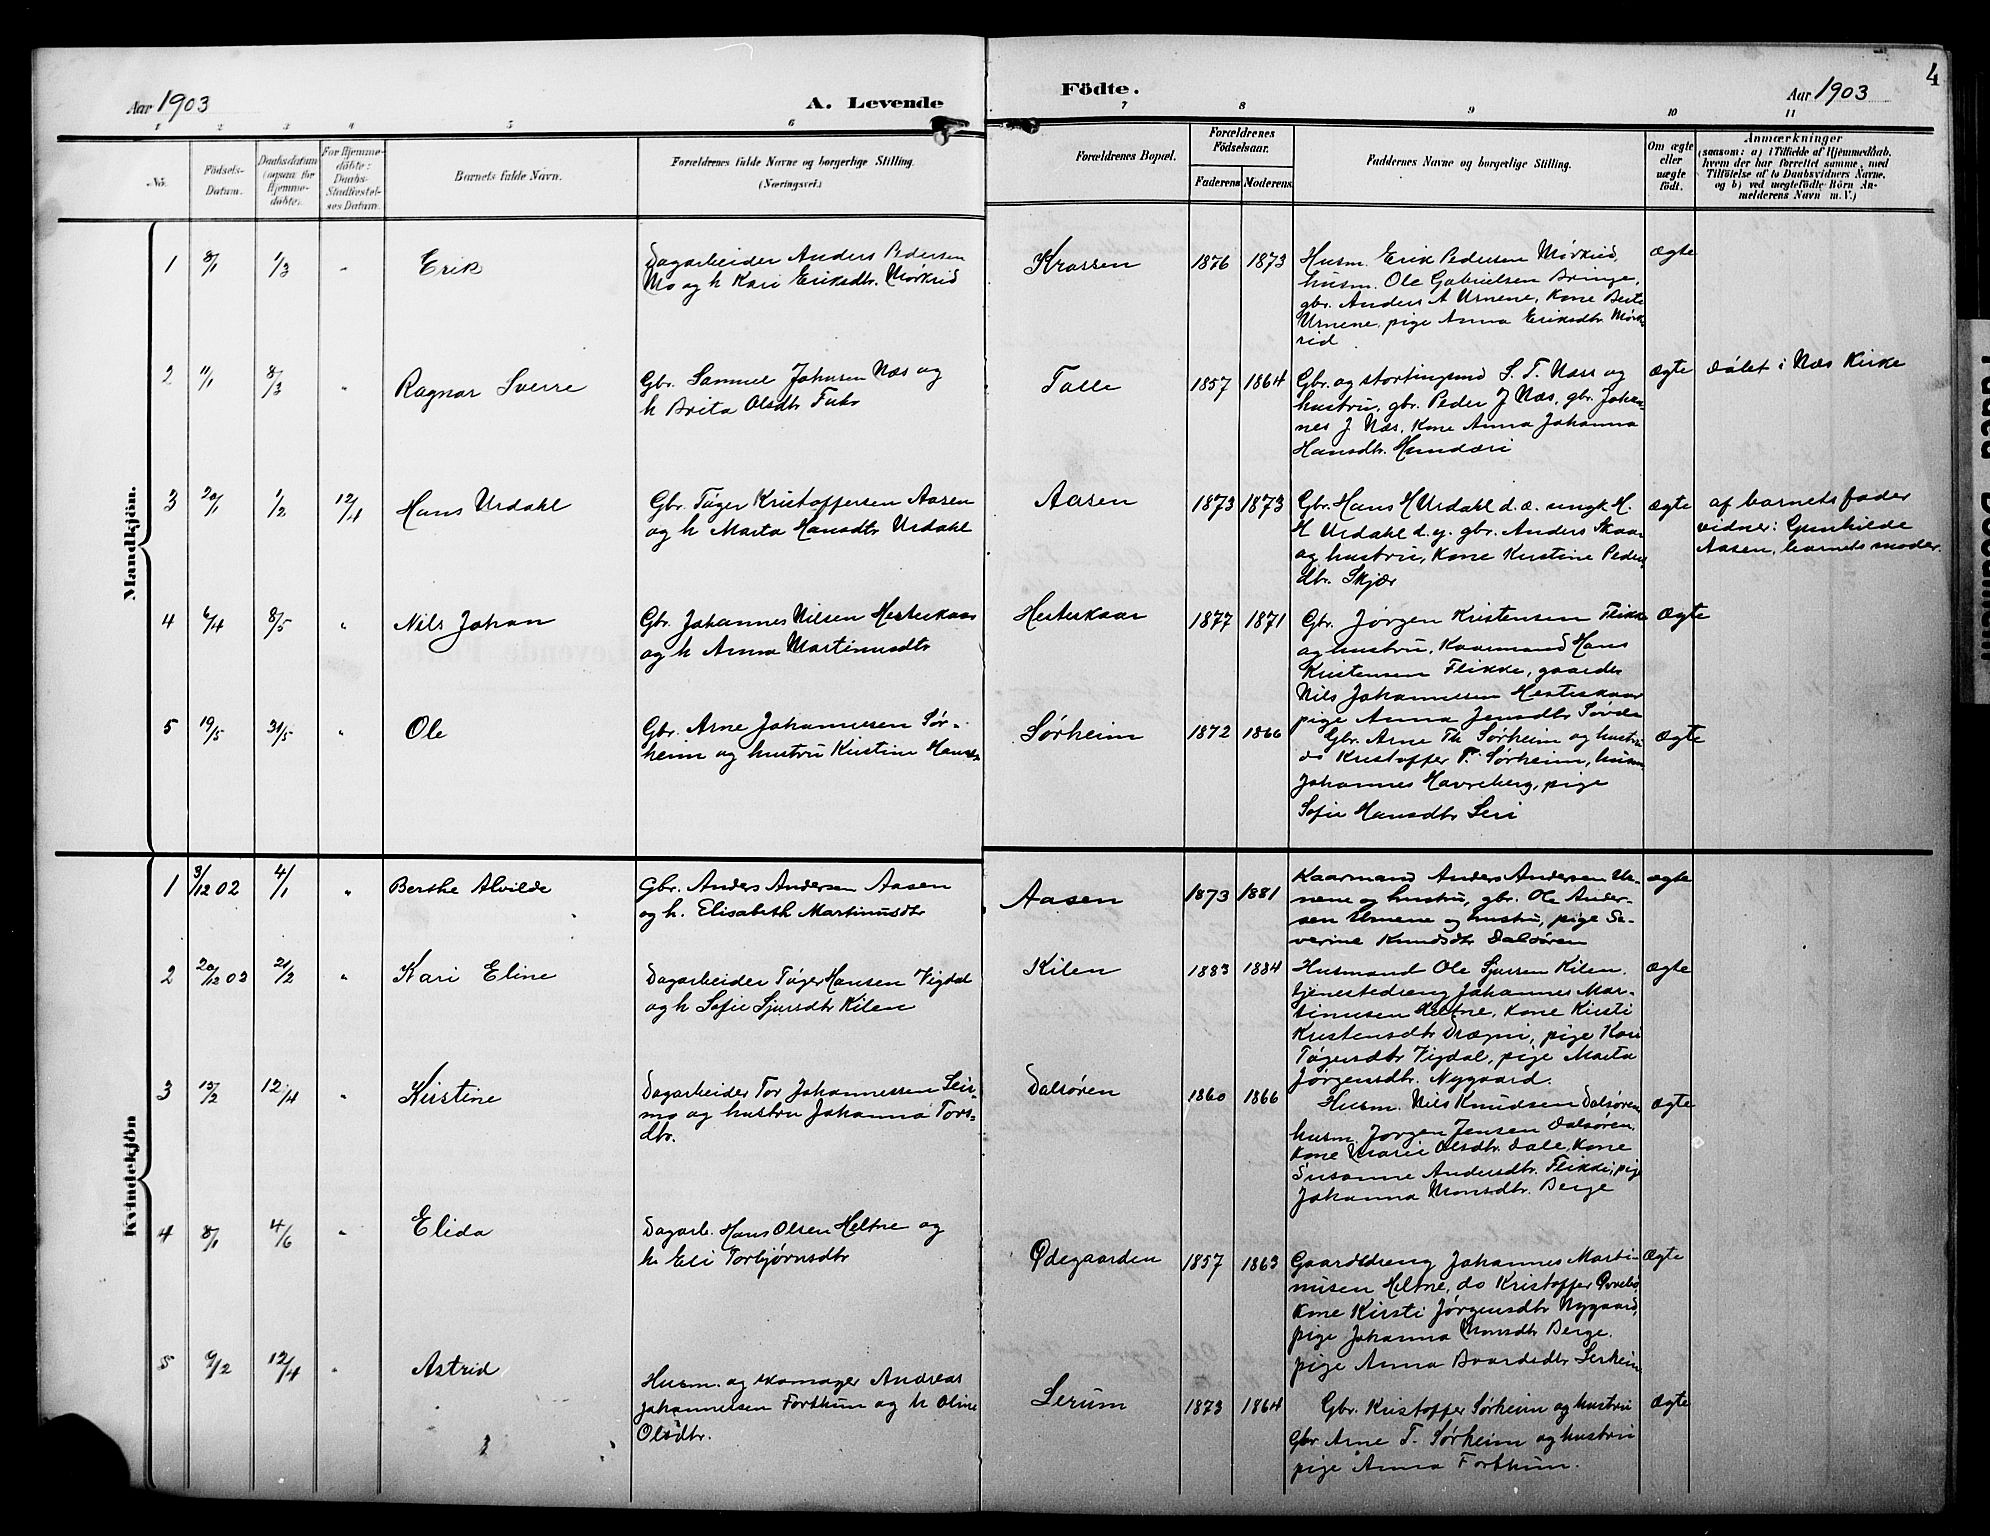 4
Aar 1903
A. Levende
Födte.
Aar 1903
1 2 3 4 5 6 7 8 9 10 11
No.
Födsels-
Datum.
Daabsdatum
(ogsaa for
Hjemme-
døbte).
For Hjemme-
døbte:
Daabs-
Stadfæstel-
ses Datum.
Barnets fulde Navn.
Forældrenes fulde Navne og borgerlige Stilling.
(Næringsvei.)
Forældrenes Bopæl.
Forældrenes
Fødselsaar.
Faderens Moderens
Faddernes Navne og borgerlige Stilling.
Om ægte
eller
uægte
født.
Anmærkninger
(saasom: a) i Tilfælde af Hjemmedaab,
hvem der har forrettet samme, med
Tilføielse af to Daabsvidners Navne,
og b) ved uægtefødte Börn An-
melderens Navn m. V.)
Mandkjön.
1 8/1 1/3 " Erik
Dagarbeider Anders Pedersen
Mo og h Kari Eriksdtr. Mørkrid
Krossen 1876 1873
Husm. Erik Pedersen Mørkrid,
husm. Ole Gabrielsen Bringe,
gbr. Anders A Urnene, Kone Berte
Urnene, pige Anna Eriksdtr. Mørk-
rid
Ægte
2 11/1 8/3 " Ragnar Sverre
Gbr. Samuel Johnsen Næs og
h Brita Olsdtr
Talle 1857 1864
Gbr. og stortingsmd S. T. Næss og
hustru, gbr. Peder J Næs, gbr. Johan-
nes J Næs, Kone Anna Johanna
Hansdtr.
ægte
døbt i Næs Kirke
3 20/1 1/2 12/4 Hans Urdahl
Gbr. Tøger Kristoffersen Aasen
og h Marta Hansdtr Urdahl
Aasen 1873 1873
Gbr. Hans H Urdahl d. æ. ungk H.
H Urdahl d. y. gbr. Anders Skaar
og hustru, Kone Kristine Peders-
dtr. Skjær
ægte
af barnets fader
vidner: Gunhilde
Aasen, barnets moder.
4 6/4 8/5 " Nils Johan
Gbr. Johannes Nilsen Hesteskaar
og h Anna Martinusdtr
Hesteskaar 1877 1871
Gbr. Jørgen Kristensen Flikke
og hustru, Kaarmand Hans
Kristensen Flikke, gaardbr
Nils Johannesen Hesteskaar
pige Anna Jensdtr Søvde
Ægte
5 19/5 31/5 " Ole
Gbr. Arne Johannesen Sør-
heim og hustru Kristine Hansdtr
Sørheim 1872 1866
Gbr. Arne Th Sørheim og hustru
do Kristoffer T. Sørheim, husm
Johannes Havreberg, pige
Sofie Hansdtr Seri
Ægte
Kvindekjön
1 3/12 02 4/1 " Berthe Alvilde
Gbr. Anders Andersen Aasen
og h. Elisabeth Martinusdtr
Aasen 1873 1881
Kaarmand Anders Andersen Ur-
nene og hustru, gbr. Ole Ander-
sen Urnene og hustru, pige Se-
verine Knudsdtr Dalsøren
ægte
2 20/12 02 21/2 " Kari Eline
Dagarbeider Tøger Hansen Vigdal
og h Sofie Sjursdtr Kilen
Kilen 1883 1884
Husmand Ole Sjursen Kilen.
tjenestedreng Johannes Mar-
tinusen Heltne, Kone Kirsti
Kristensdtr Drægni, pige Kari
Tøgersdtr Vigdal, pige Marta
Jørgensdtr. Nygaard.
Ægte
3 15/2 12/4 " Kirstine
Dagarbeider Tor Johannessen Leir-
mo og hustru Johanna Tors-
dtr.
Dalsøren 1860 1866
Husm. Nils Knudsen Dalsøren,
husm. Jørgen Jensen Dalsøren,
Kone Marie Olsdtr. Dale, Kone
Susanne Andersdtr. Flikke, pige
Johanna Monsdtr. Berge
Ægte
4 8/1 4/6 " Elida
Dagarb. Hans Olsen Heltne og
h. Eli Torbjørnsdtr
Ødegaarden 1857 1863
Gaarddreng Johannes Marti-
nusen Heltne, do Kristoffer
Kone Kirsti Jørgensdtr Nygaard,
pige Johanna Monsdtr Berge.
pige Anna Baardsdtr Serheim
Ægte
5 6/12 12/4 " Astrid
Husm. og skomager Andreas
Johannesen Forthun og h Oline
Olsdtr.
Lerum 1873 1864
Gbr. Kristoffer Sørheim og hustru
Gbr Arne T. Sørheim og hustru
pige Anna Forthun.
Ægte